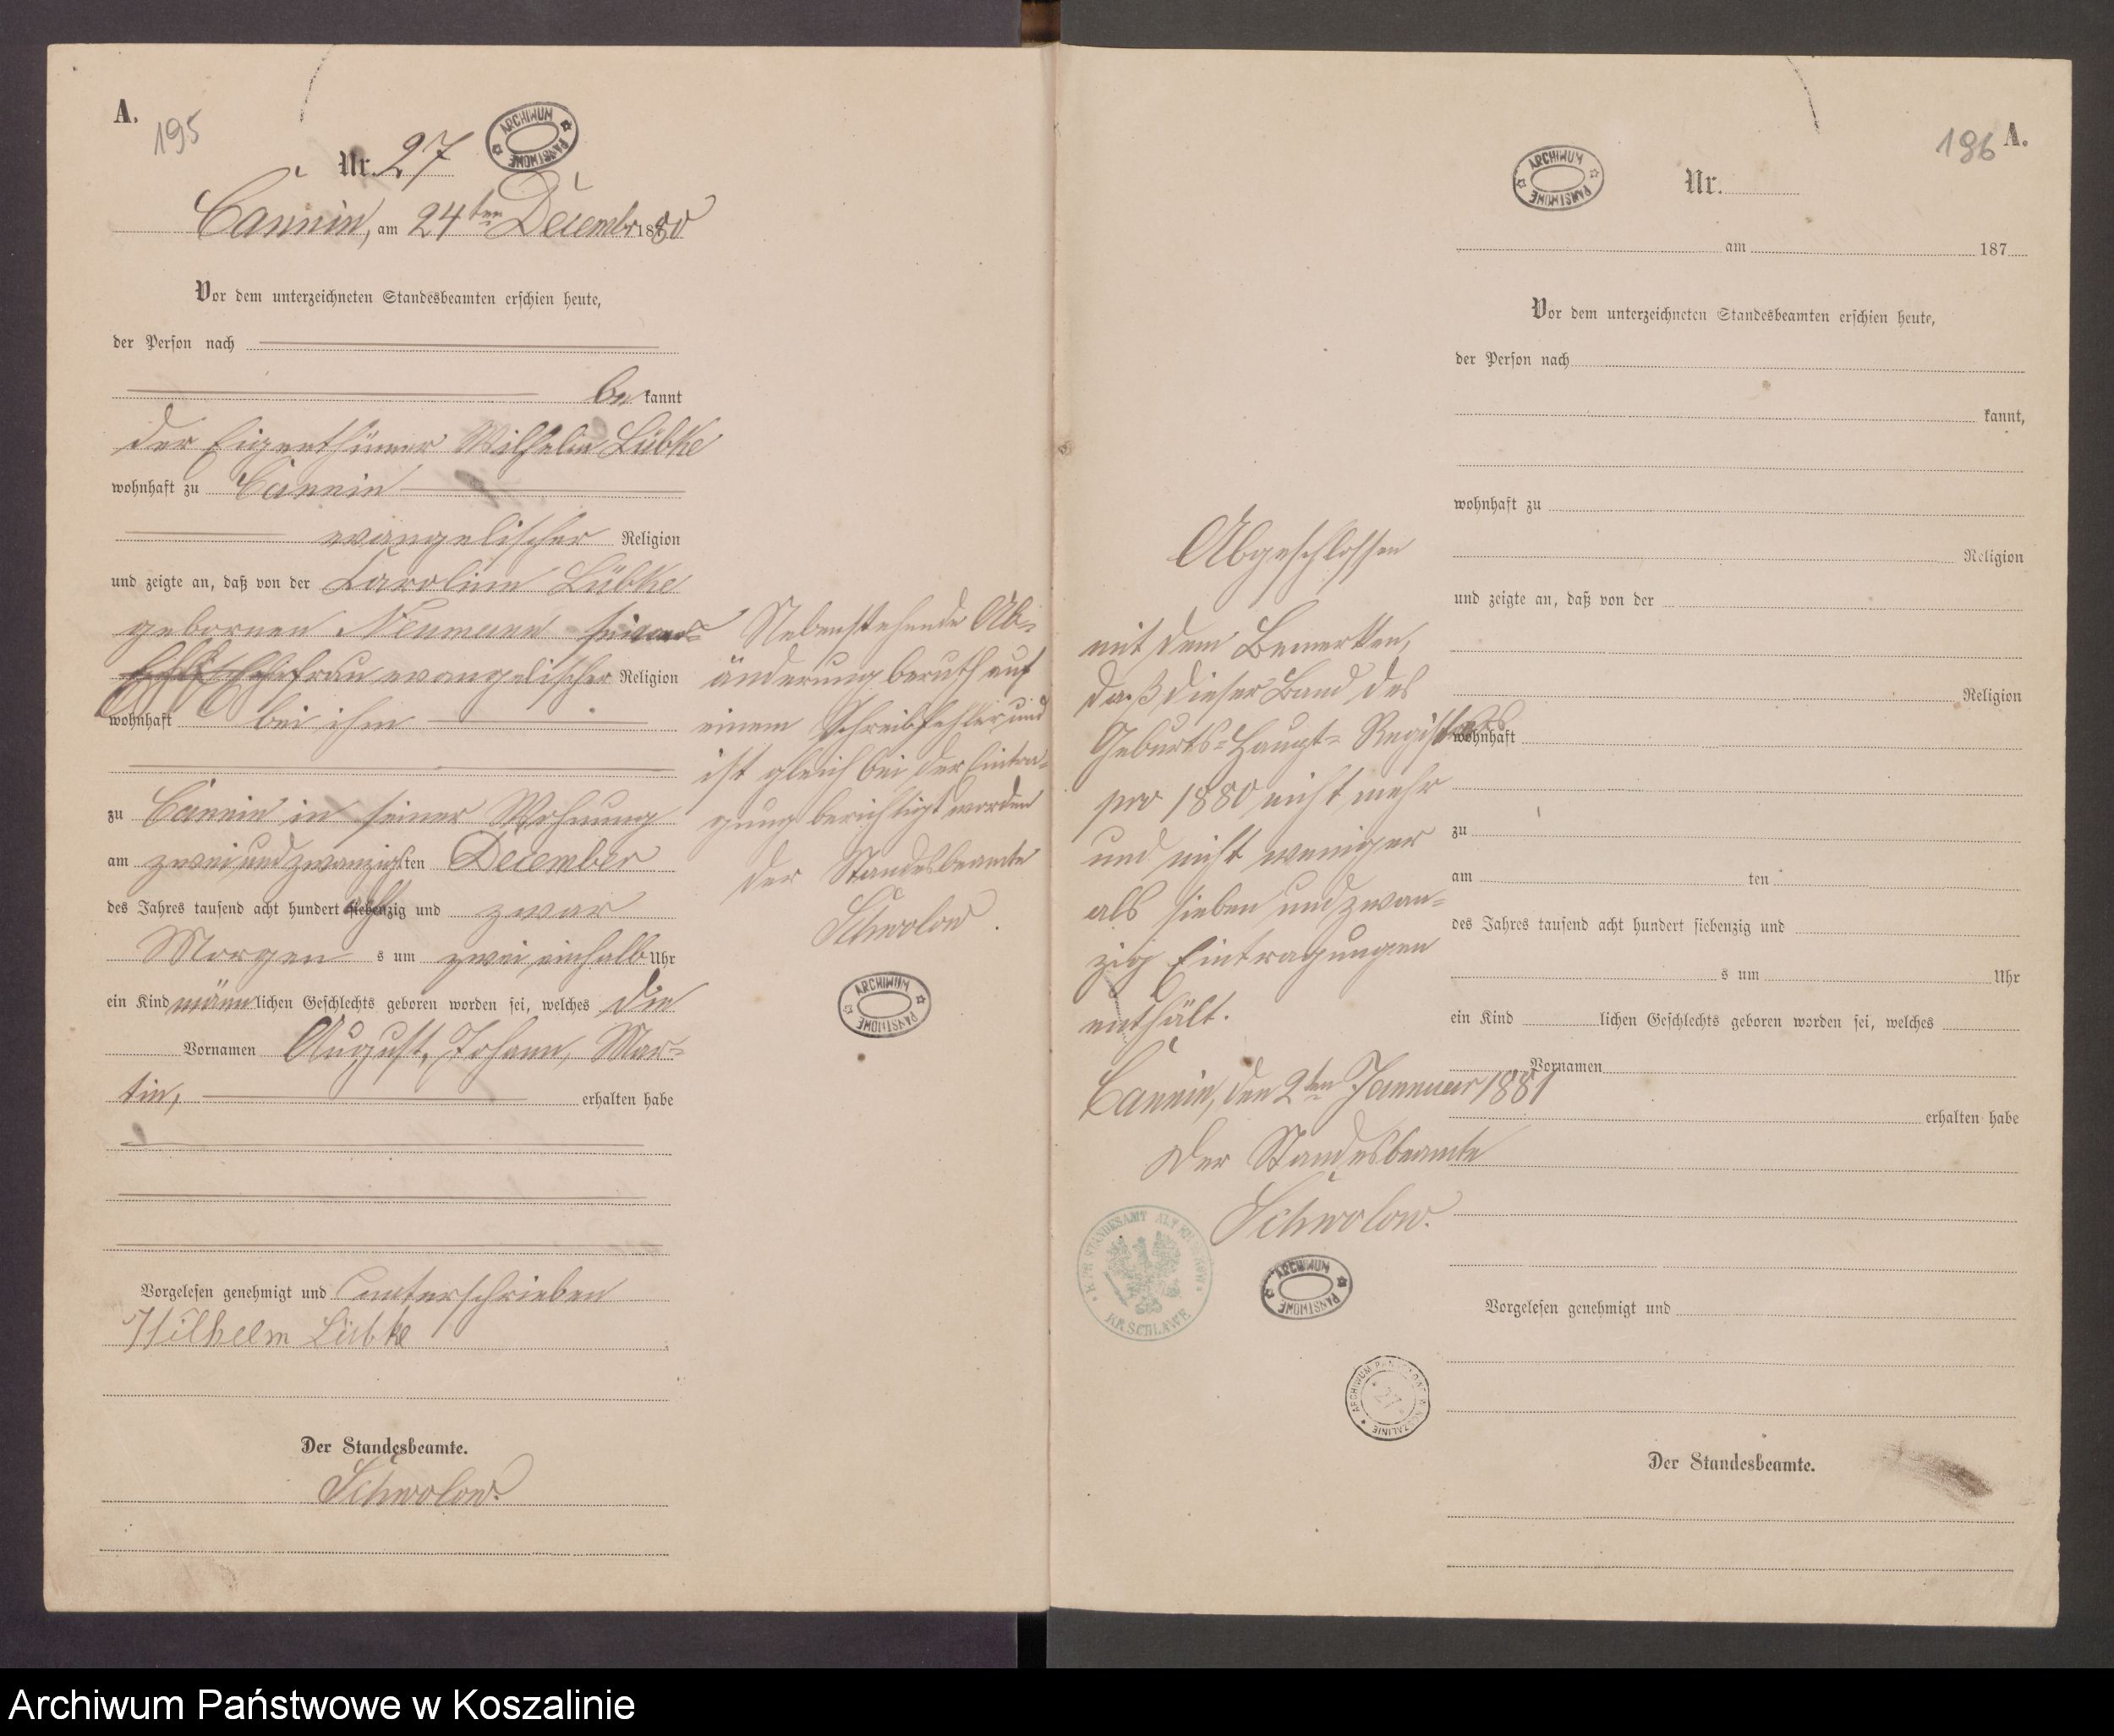 A.
195
Nr. 27
ARCHIWUM PAŃSTWOWE
Cannin, am 24ten Decembr 1880
Vor dem unterzeichneten Standesbeamten erschien heute,
der Person nach
be kannt
der Eigenthümer Wilhelm Lübke
wohnhaft zu Cannin
evangelischer Religion
und zeigte an, daß von der Caroline Lübke
gebornen Neumann seiner
Ehefrau evangelischer Religion
wohnhaft bei ihm
zu Cannin in seiner Wohnung
am zwei und zwanzigsten December
des Jahres tausend acht hundert achtzig und zwar
Morgens um zwei einhalb Uhr
ein Kind männlichen Geschlechts geboren worden sei, welches die
Vornamen August, Johann, Mar-
tin, erhalten habe
Vorgelesen genehmigt und unterschrieben
Wilhelm Lübke
Der Standesbeamte.
Schwolow.
Nebenstehende Ab-
änderung beruth auf
einem Schreibfehler und
ist gleich bei der Eintra-
gung berichtigt worden
Der Standesbeamte
Schwolow.
ARCHIWUM PAŃSTWOWE
Abgeschlossen
mit dem Bemerken,
daß dieser Band des
Geburts-Haupt-Registers
pro 1880 nicht mehr
und nicht weniger
als sieben und zwan-
zig Eintragungen
enthält.
Cannin, den 2ten Januar 1881
Der Standesbeamte
Schwolow.
K. PR. STANDESAMT ALT KRAKOW
KR. SCHLAWE
ARCHIWUM PAŃSTWOWE
ARCHIWUM PAŃSTWOWE W KOSZALINIE
27
186 A.
ARCHIWUM PAŃSTWOWE
Nr.
am 187
Vor dem unterzeichneten Standesbeamten erschien heute,
der Person nach
kannt,
wohnhaft zu
Religion
und zeigte an, daß von der
Religion
wohnhaft
zu
am ten
des Jahres tausend acht hundert siebenzig und
s um Uhr
ein Kind lichen Geschlechts geboren worden sei, welches
Vornamen
erhalten habe
Vorgelesen genehmigt und
Der Standesbeamte.
Archiwum Państwowe w Koszalinie